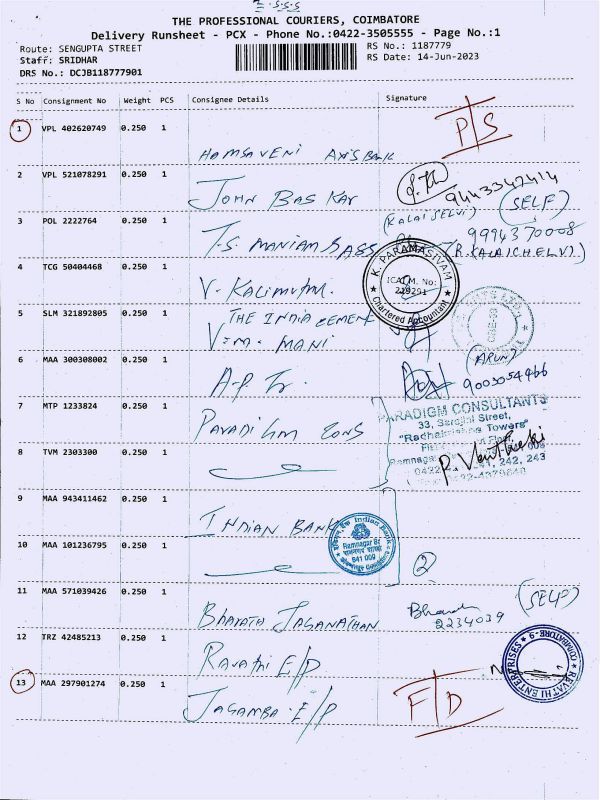 THE PROFESSIONAL COURIERS, COIMBATORE
Delivery Runsheet - PCX - Phone No.:0422-3505555 - Page No.:1
Route: SENGUPTA STREET
RS No.: 1187779
Staff: SRIDHAR
RS Date: 14-Jun-2023
DRS No.: DCJB118777901
S No Consignment No Weight PCS Consignee Details Signature
1 VPL 402620749 0.250 1
P/S
HAMSAVENI AXIS BANK
2 VPL 521078291 0.250 1
9443342414
JOHN BASKAR
(SELF)
3 POL 2222764 0.250 1
(KALAI SELVI)
9994370008
T.S. MANIAM & ASS
(R. KALAICHELVI)
4 TCG 50404468 0.250 1
K. PARAMASIVAM
ICAI M. No: 219291
Chartered Accountant
V. KALIMUTHU
5 SLM 321892805 0.250 1
THE INDIA CEMENT
V.M. MANI
6 MAA 300308002 0.250 1
(ARUN)
A.P. Tr.
7 MTP 1233824 0.250 1
PARADIGM CONSULTANTS
33, Street,
PARADIGM CONS
"Radhakrishna Towers"
8 TVM 2303300 0.250 1
9 MAA 943411462 0.250 1
INDIAN BANK
Indian Bank
Ramnagar Br
641 009
10 MAA 101236795 0.250 1
2
11 MAA 571039426 0.250 1
(SELF)
Bharath
2234039
BHARATH JAGANATHAN
12 TRZ 42485213 0.250 1
REVATHI ENTERPRISES
COIMBATORE - 9
RAVATHI E/P
13 MAA 297901274 0.250 1
F/D
JAGAMBA E/P